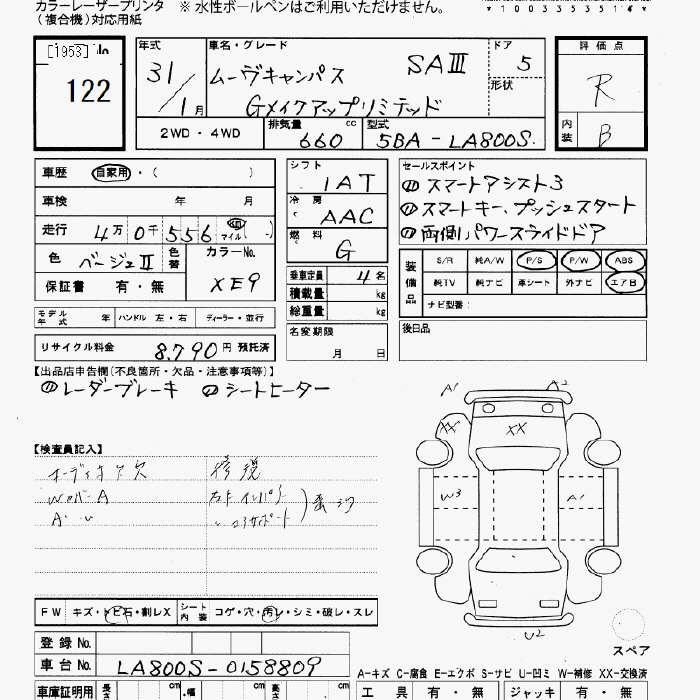 カラーレーザープリンタ ※ 水性ボールペンはご利用いただけません。
(複合機)対応用紙
*1003353514*
[1953] No
122
年式 31/1月
車名・グレード ムーヴキャンバス SAⅢ
Gメイクアップリミテッド
ドア 5
形状
評価点 R
内装 B
2WD・4WD
排気量 660 cc
型式 5BA-LA800S
車歴 自家用・( )
車検 年 月
走行 4万 0千 556 km マイル (-)
色 ベージュⅡ 色替
カラーNo. XE9
保証書 有・無
モデル年式 年 ハンドル 左・右 ディーラー・並行
リサイクル料金 8,790円 預託済
シフト 1AT
冷房 AAC
燃料 G
乗車定員 4名
積載量 kg
総重量 kg
名変期限 月 日
セールスポイント
(1) スマートアシスト3
(1) スマートキー、プッシュスタート
(1) 両側パワースライドドア
装備品 S/R 純A/W P/S P/W ABS
純TV 純ナビ 革シート 外ナビ エアB
ナビ型番:
後日品
【出品店申告欄(不良箇所・欠品・注意事項等)】
(1) レーダーブレーキ (1) シートヒーター
【検査員記入】
オーディオ欠
修現
A1 A2
XX XX
W3 A1
U2
スペア
FW キズ・トビ石・割レX シート内装 コゲ・穴・汚レ・シミ・破レ・スレ
登録No.
車台No. LA800S-0158809
車庫証明用 長さ cm ・幅 cm 高さ cm
A-キズ C-腐食 E-エクボ S-サビ U-凹ミ W-補修 XX-交換済
工具 有・無 ジャッキ 有・無